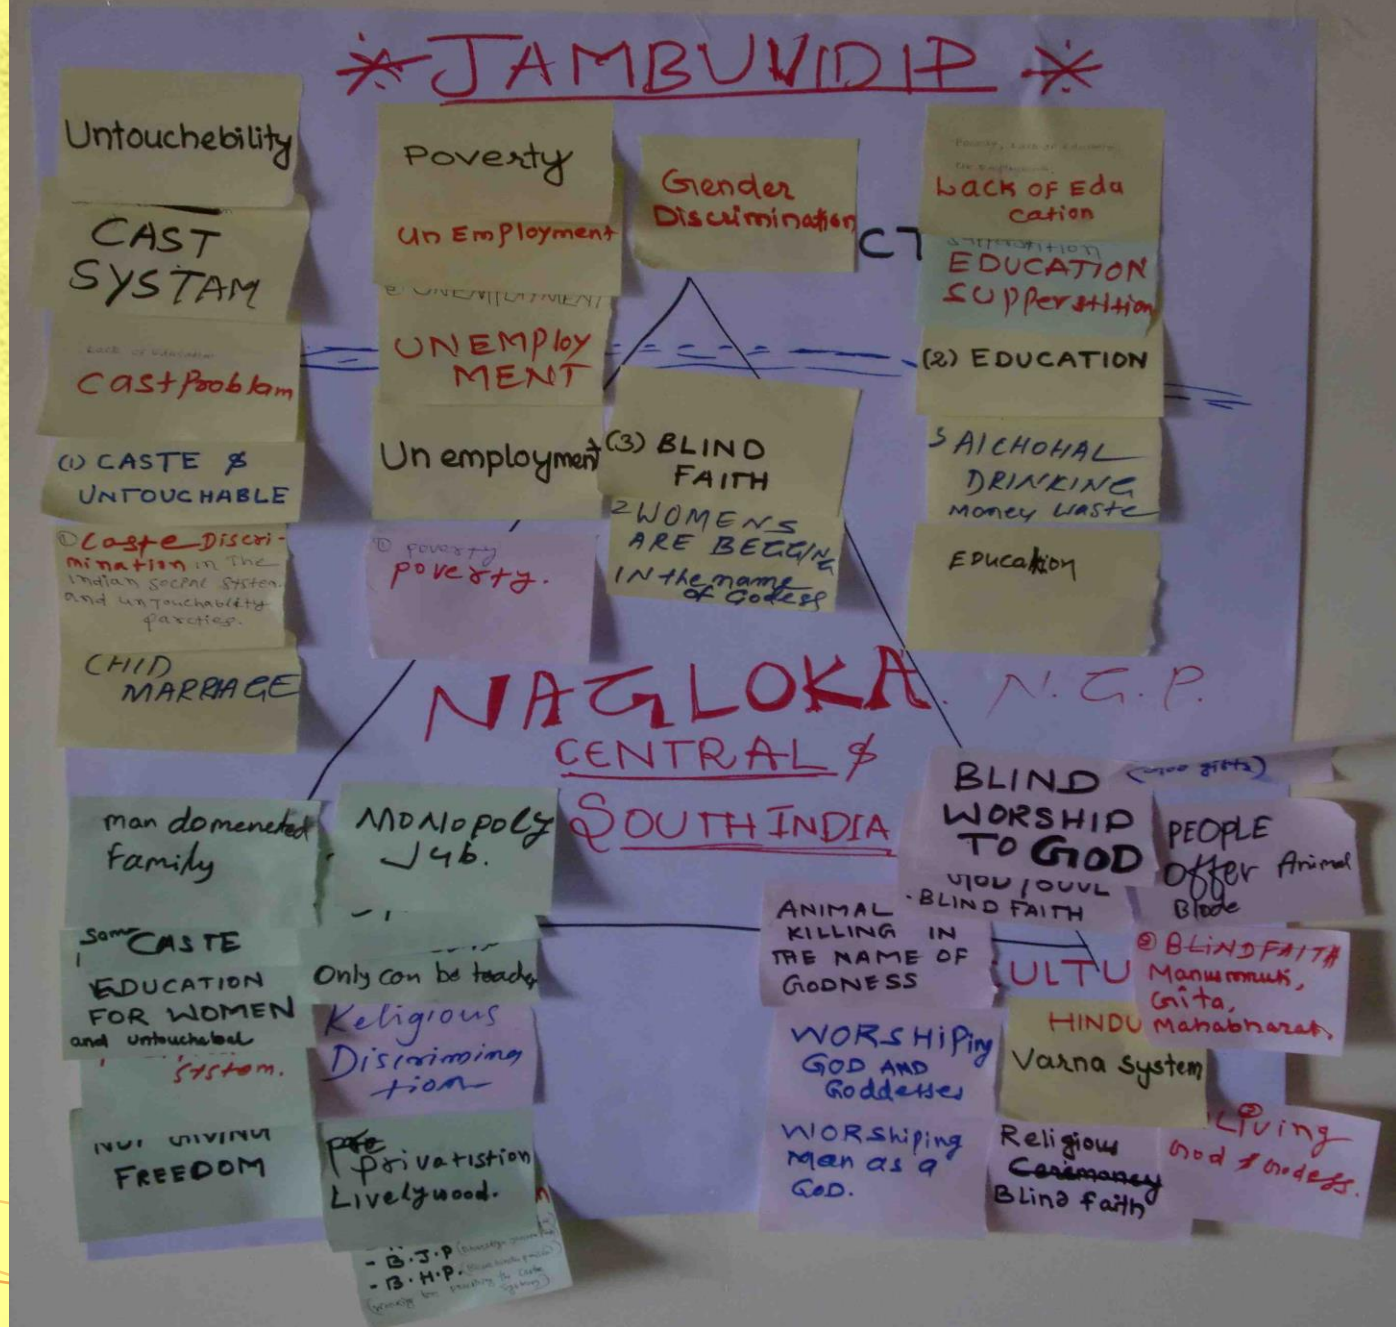 JAMBUVIDIP
Untouchebility
CAST
SYSTAM
Lack of Education
Cast Problam
(1) CASTE &
UNTOUCHABLE
① Caste Discri-
mination in The
Indian Social System.
and untouchability
Parcties.
CHID
MARRIAGE
Poverty
Un Employment
UNEMPLOYMENT
UNEMPloy
MENT
Un employment
① poverty
poverty.
Gender
Discrimination
CT
(3) BLIND
FAITH
2 WOMENS
ARE BEGGING
IN the name
of Godess
Lack of Edu
cation
EDUCATION
SUPPerstition
(2) EDUCATION
3 AlCHOHAL
DRINKING
Money Waste
EDucation
NAGLOKA. N.G.P.
CENTRAL &
SOUTH INDIA
man domeneted
family
Some CASTE
EDUCATION
FOR WOMEN
and untouchabal
System.
NOT GIVING
FREEDOM
MONOPOLY
Jub.
Only can be teacher
Religious
Discrimina
tion
privatistion
Livelywood.
- B.J.P
- B.H.P.
BLIND
WORSHIP
TO GOD
BLIND FAITH
PEOPLE
Offer Animal
Blode
ANIMAL
KILLING IN
THE NAME OF
GODNESS
ULTU
② BLIND FAITH
Manusmruti,
Gita,
Mahabharat.
WORSHIPing
GOD AND
Goddesses
HINDU
Varna System
WORShiping
Man as a
GOD.
Religious
Ceremoney
Blind faith
② Living
God & Godess.